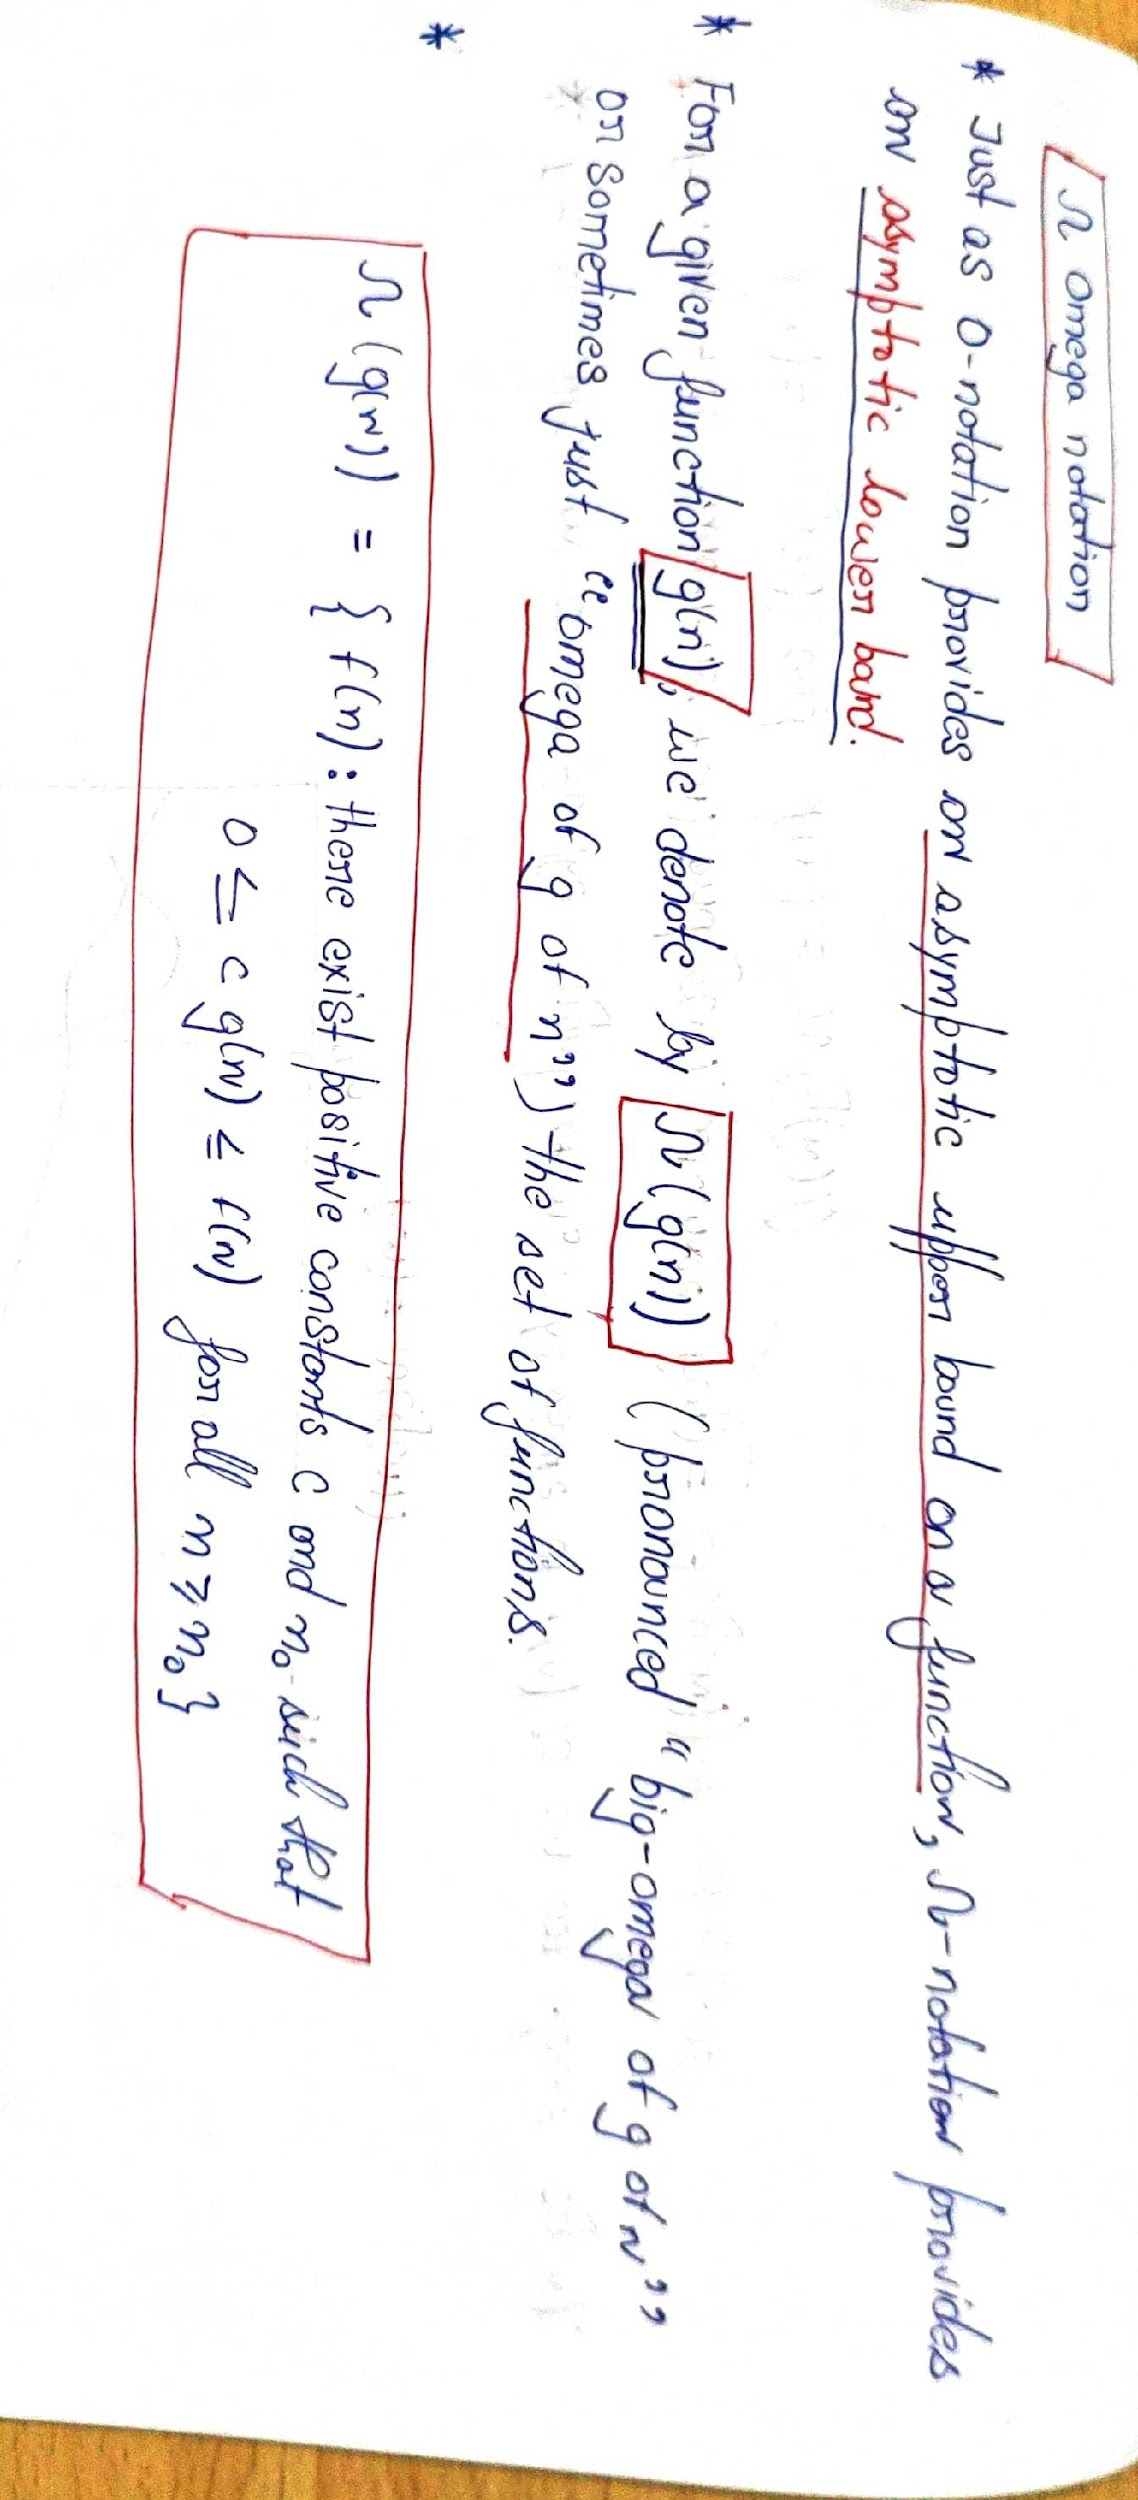 Ω omega notation
* Just as O-notation provides an asymptotic upper bound on a function, Ω-notation provides
an asymptotic lower band.
* For a given function g(n), we denote by Ω(g(n)) (pronounced "big-omega of g of n"
or sometimes just "omega of g of n") the set of functions.
*
Ω(g(n)) = { f(n) : there exist positive constants c and n₀ such that
0 ≤ c g(n) ≤ f(n) for all n ≥ n₀ }